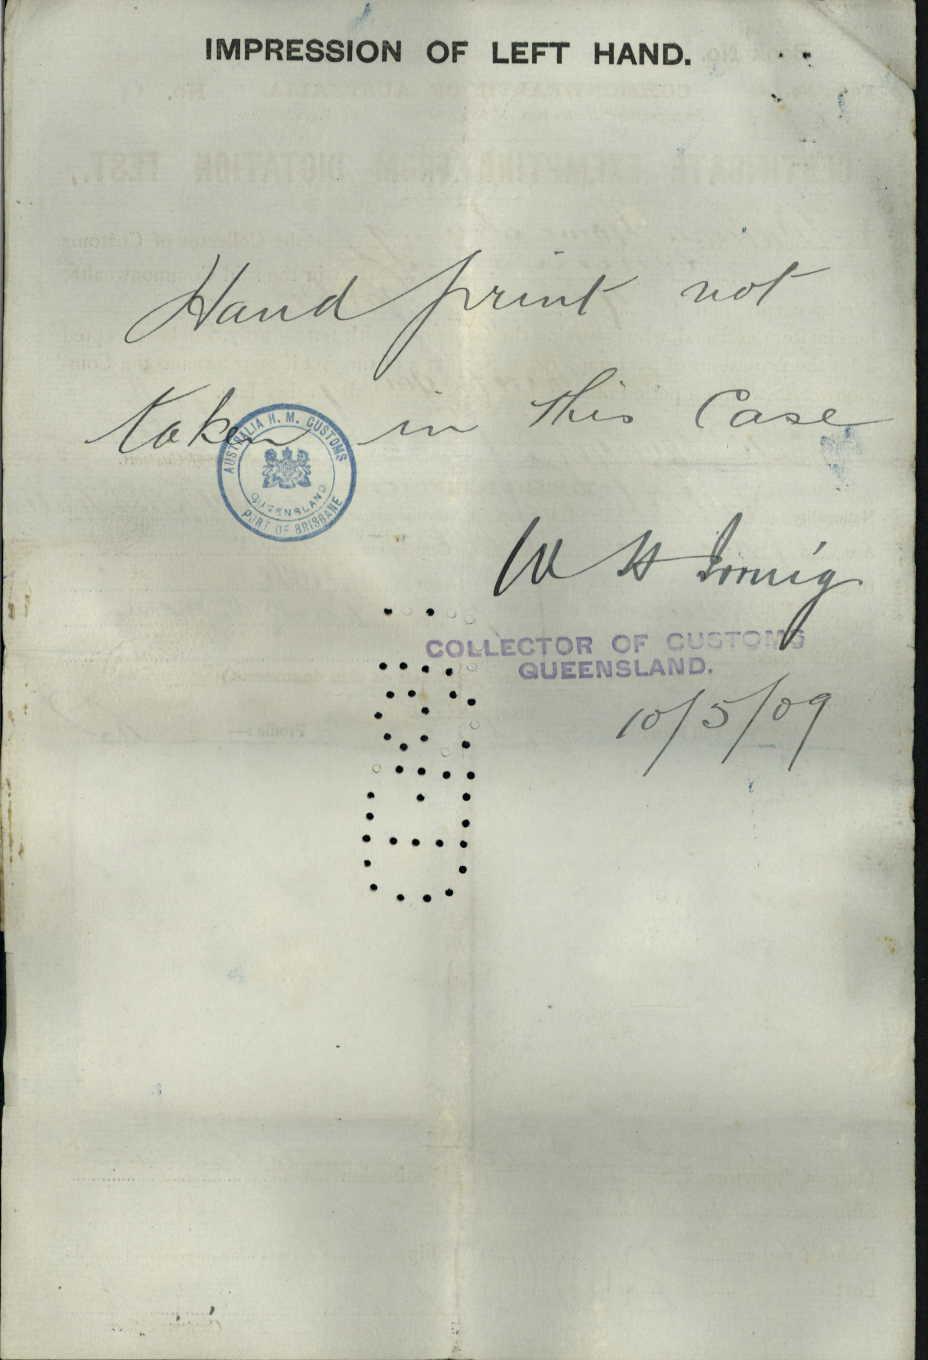 IMPRESSION OF LEFT HAND.
Hand print not
taken in this Case
AUSTRALIA H. M. CUSTOMS
QUEENSLAND
PORT OF BRISBANE
W H Irving
COLLECTOR OF CUSTOMS
QUEENSLAND.
10/5/09